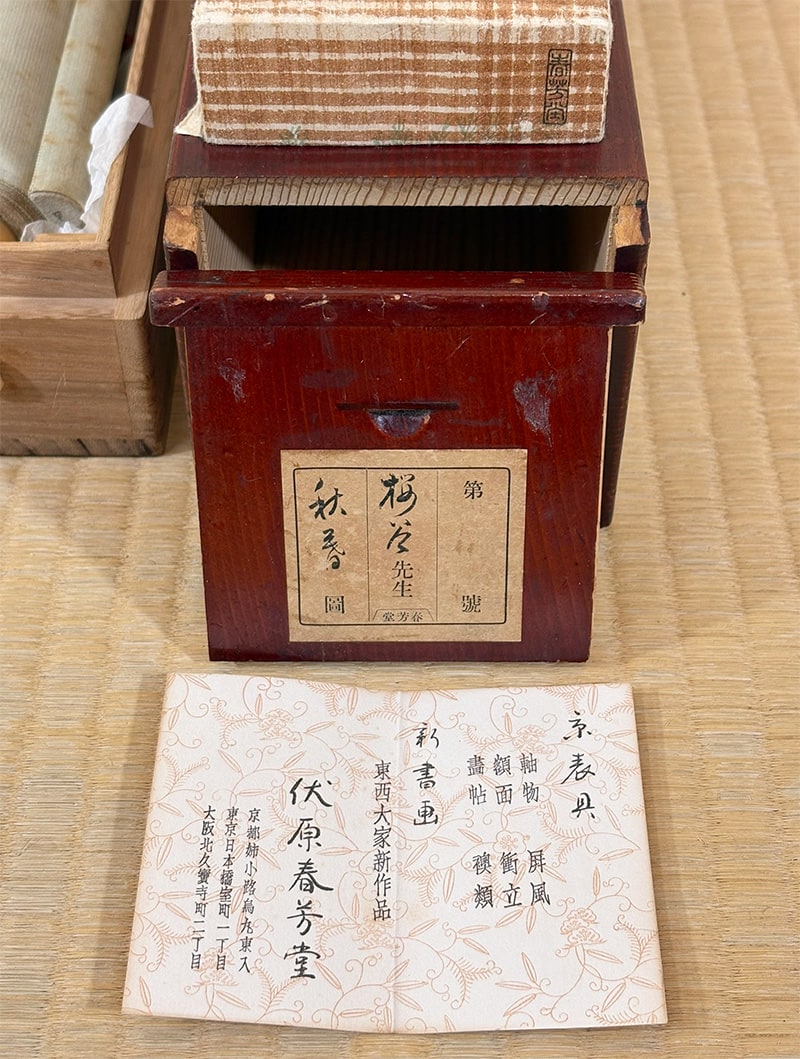 春芳堂
第 號
桜谷先生
春芳堂
秋暮圖
京表具
軸物 屏風
額面 衝立
畵帖 襖類
新書画
東西大家新作品
伏原春芳堂
京都姉小路烏丸東入
東京日本橋室町一丁目
大阪北久寳寺町二丁目